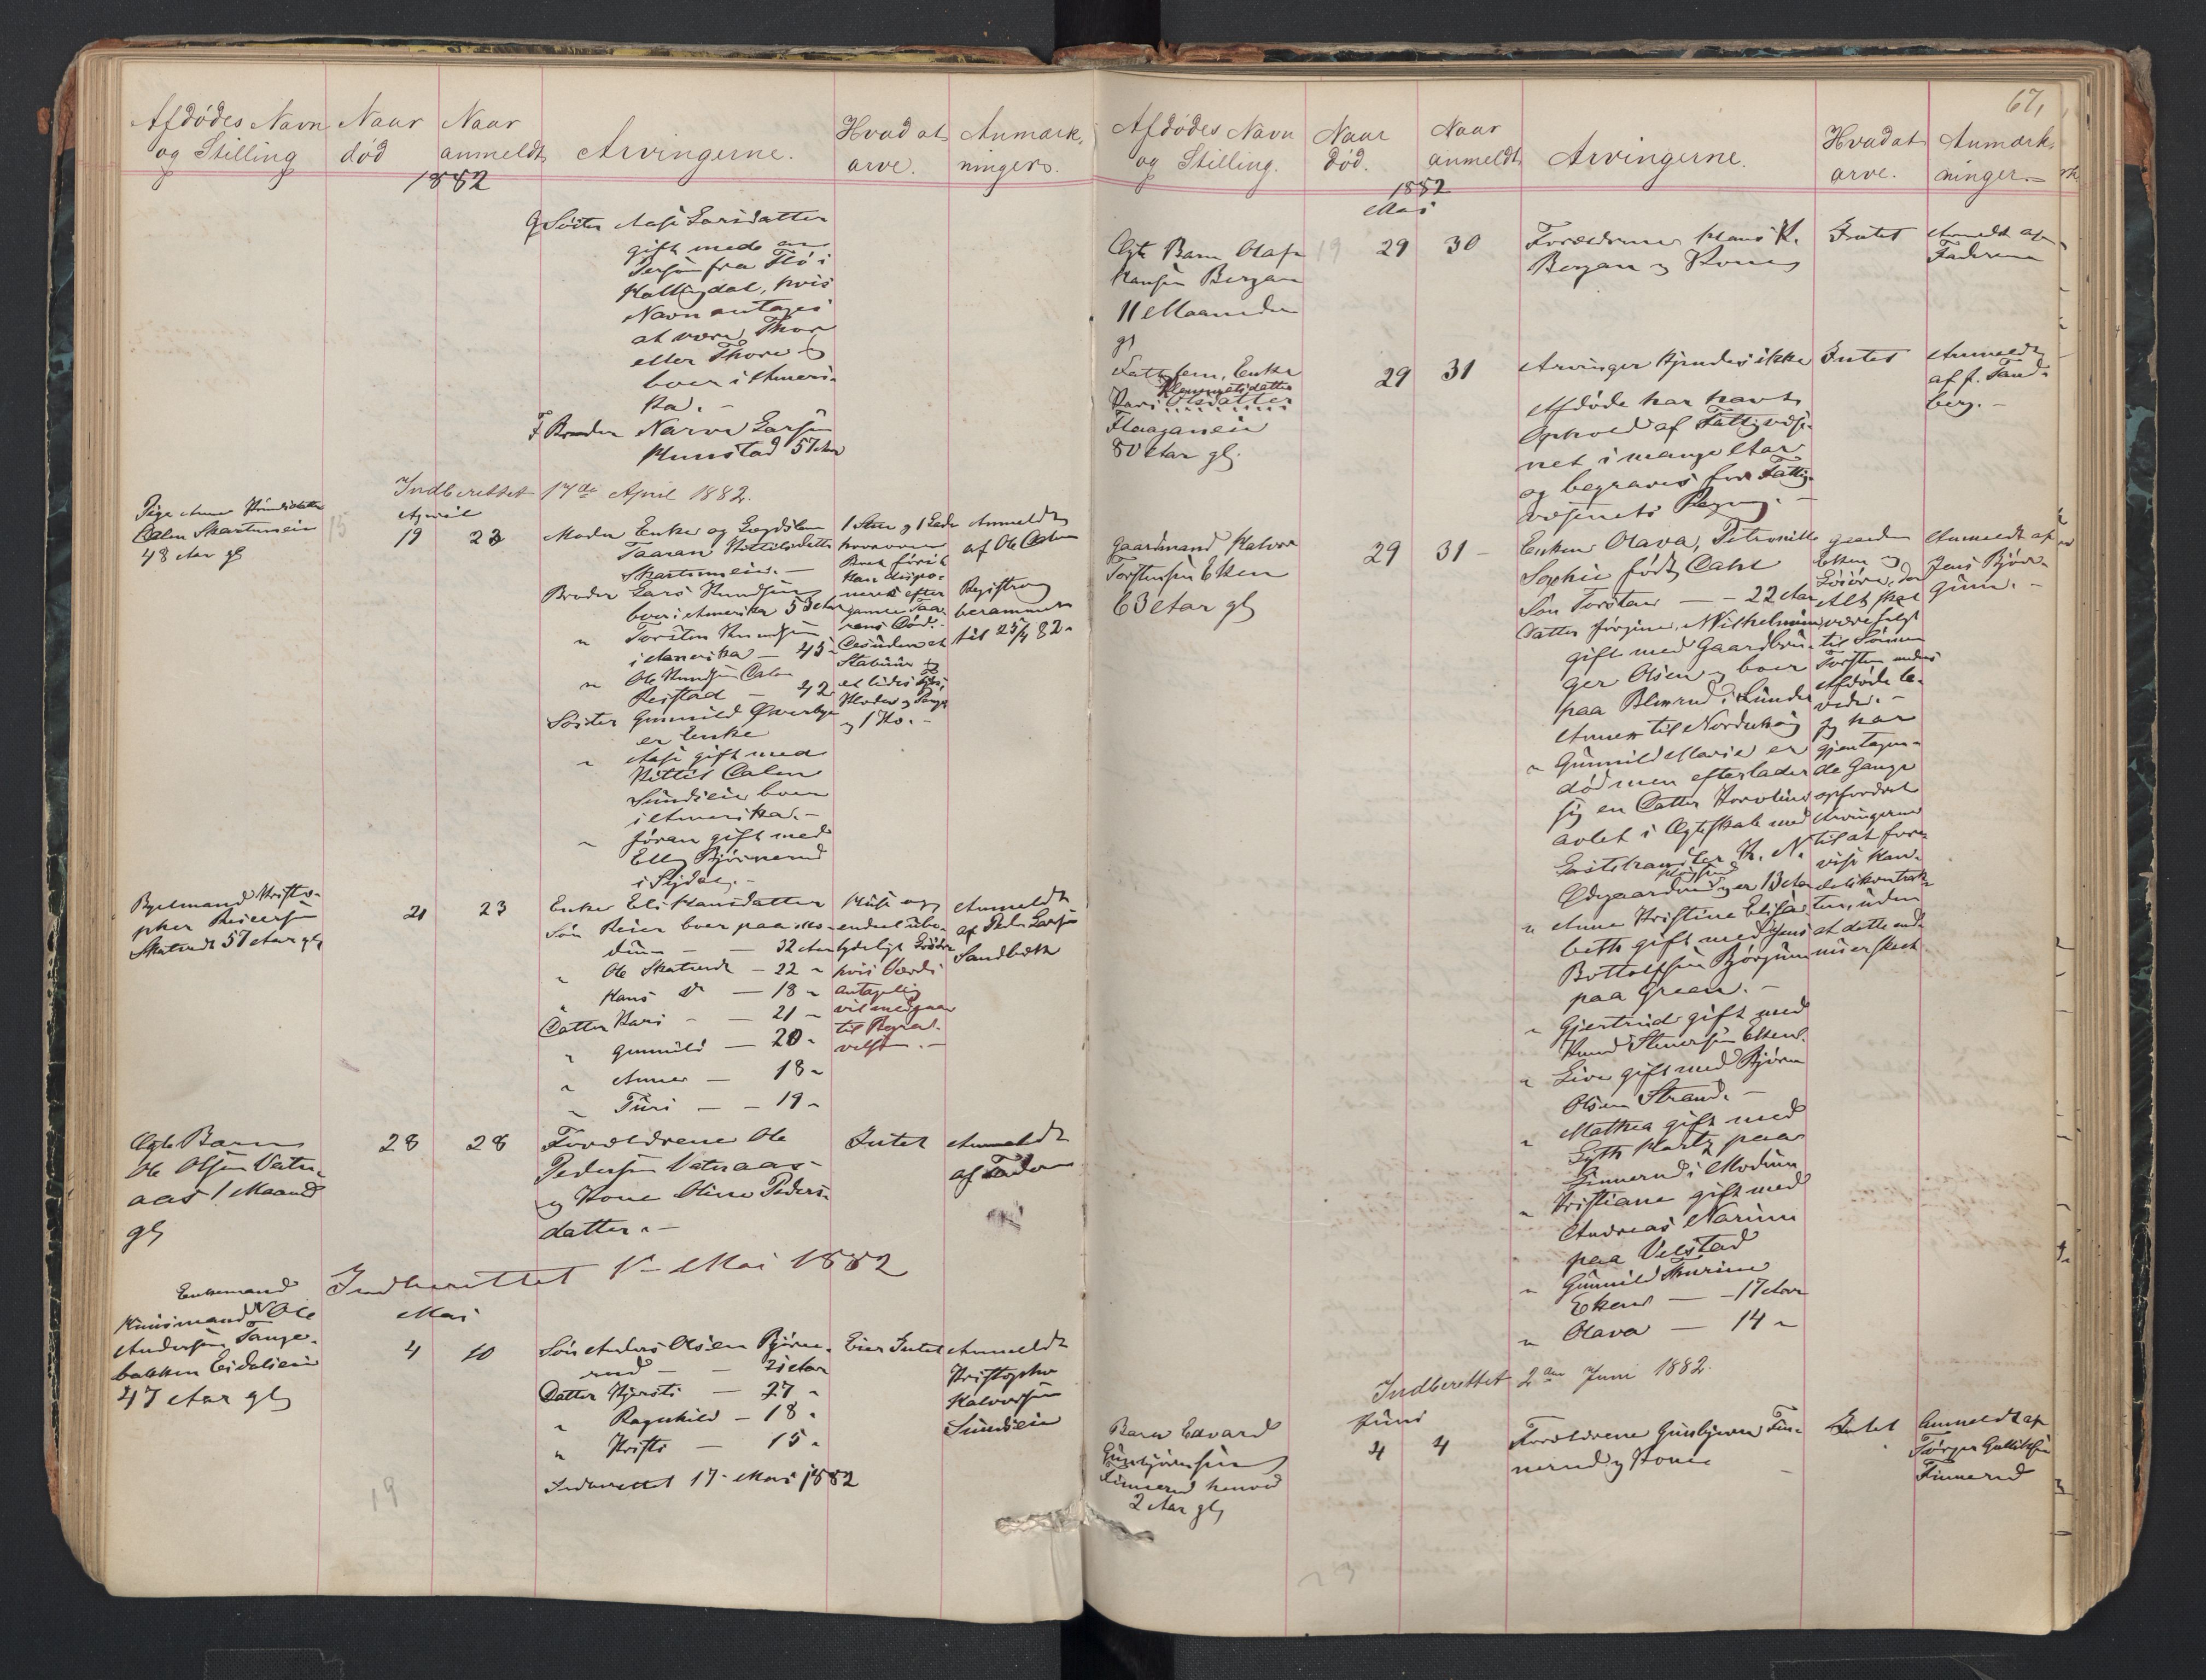 Afdødes Navn
og Stilling
Naar
død
Naar
anmeldt
Arvingerne.
Hvad at
arve.
Anmærk-
ninger.
1882
g Søster Aase Larsdatter
gift med en
Person fra Flø i
Hallingdal, hvis
Navn antages
at være Thor
eller Thore og
boer i Ameri-
ka. -
F. Broder Narve Larsen
Hunstad 57 Aar
Indberettet 17de April 1882.
April
Pige Anne Knudsdatter
Dalen Skartumeie
48 Aar gl
15
19
23
Moder Enke og Lægdslem
Taaran Kittilsdatter
Skartumeie. -
Broder Lars Knudsen
boer i Amerika 53 Aar
" Torsten Knudsen
i Amerika - 45 "
" Ole Knudsen Dalen
Reistad - 42
Søster Gunnild Øverbye
er Enke
" Aase gift med
Kittil Dalen
Sundseie boer
i Amerika. -
" Jøran gift med
Elling Bjørnerud
i Sigdal. -
1 Stue og 1 Lade
hvorover
Boet først
kan dispo-
neres efter
gamle Taa-
rans Død.
Desuden et
Stabuur og
et lidet Fjøs,
Klæder og Penge
og 1 Ko. -
Anmeldt
af Ole Dalen
Registrering
berammet
til 25/4 82.
Bygselmand Kristo-
pher Reiersen
Skatvedt 57 Aar gl
21
23
Enke Eli Hansdatter
Søn Reier boer paa Mo-
dum - - 32 Aar
" Ole Skatvedt - 22 "
" Hans do - 18 "
Datter Kari - - 21 "
" Gunnild - 20 "
" Anne - 18 "
" Turi - - 19 "
Huse og
endeel ube-
tydeligt Løsøre
hvis Værdi
antagelig
vil medgaae
til Begra-
velsen. -
Anmeldt
af Peder Larsen
Sandbæk
Ægte Barn
Ole Olsen Vatn-
aas 1 Maaned
gl
28
28
Forældrene Ole
Pedersen Vatnaas
og Kone Oline Peders-
datter. -
Intet
Anmeldt
af Faderen
Indberettet 1ste Mai 1882
Enkemand
Huusmand Ole
Andersen Tange-
bakken Eidalseie
47 Aar gl
Mai
4
10
Søn Anders Olsen Bjørne-
rud - - 21 Aar
Datter Kjersti - 27 "
" Ragnhild - 18 "
" Kristi - 15 "
Eier Intet
Anmeldt
Kristopher
Halvorsen
Sundseie
Indberettet 17 Mai 1882
19
67,
Afdødes Navn
og Stilling.
Naar
død.
Naar
anmeldt
Arvingerne.
Hvad at
arve.
Anmærk-
ninger. -
1882
Mai
Ægte Barn Olaf
Hansen Bergan
11 Maaneder
gl
19
29
30
Forældrene Hans K.
Bergan og Kone
Intet
Anmeldt af
Faderen
Fattiglem, Enke
Klemmetsdatter
Kari Olsdatter
Flaaganeie
80 Aar gl.
29
31
Arvinger kjendes ikke
Afdøde har havt
Ophold af Fattigvæse-
net i mange Aar
og begraves for Fattig-
væsenets Regning. -
Intet
Anmeldt
af J. Tand-
berg. -
Gaardmand Halvor
Torstensen Eken
63 Aar gl
29
31 -
Enken Olava, Petronille
Sophie født Dahl
Søn Torstein - - 22 Aar
Datter Jørgine, Wilhelmine
gift med Gaardbru-
ger Olsen og boer
paa Blimrud i Lunder
Annex til Norderhov
" Gunnild Marie er
død men efterlader
sig en Datter Karoline
avlet i Ægteskab med
K. N.
Ødegaarden og er 13 Aar
" Anne Kristine Elisa-
beth gift med Jens
Bottolfsen Bjørgum
paa Green. -
" Gjertrud gift med
Knud Stenersen Eken.
" Live gift med Bjørn
Olsen Strand. -
" Mathea gift med
Gyth Hartz paa
Linnerud i Modum
" Kristiane gift med
Andreas Narum
paa Velstad
" Gunnild Thurine
Eken - - 17 Aar
" Olava - 14 "
Gaarden
Eken og
Løsøre, dog
Alt skal
være solgt
til Sønnen
Torsten medens
Afdøde le-
vede. -
Jeg har
gjentagen-
de Gange
opfordret
Arvingerne
til at fore-
vise Kon-
trakten, uden
at dette end-
nu er skeet
Anmeldt af
Jens Bjør-
gum. -
Indberettet 2den Juni 1882.
Juni
Barn Edvard
Gunbjørnsen
Finnerud henved
2 Aar gl
4
4
Forældrene Gunbjørn Fin-
nerud og Kone
Intet
Anmeldt af
Jørgen Gulliksen
Finnerud